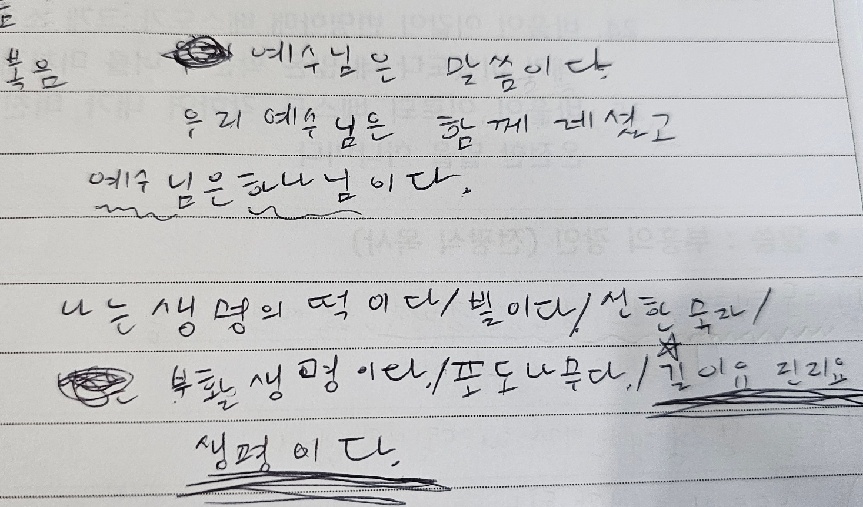 복음 예수님은 말씀이다.
우리 예수님은 함께 계셨고
예수님은 하나님이다.
나는 생명의 떡이다/빛이다/선한 목자/
부활 생명이다./포도나무다./길이요 진리요
생명이다.